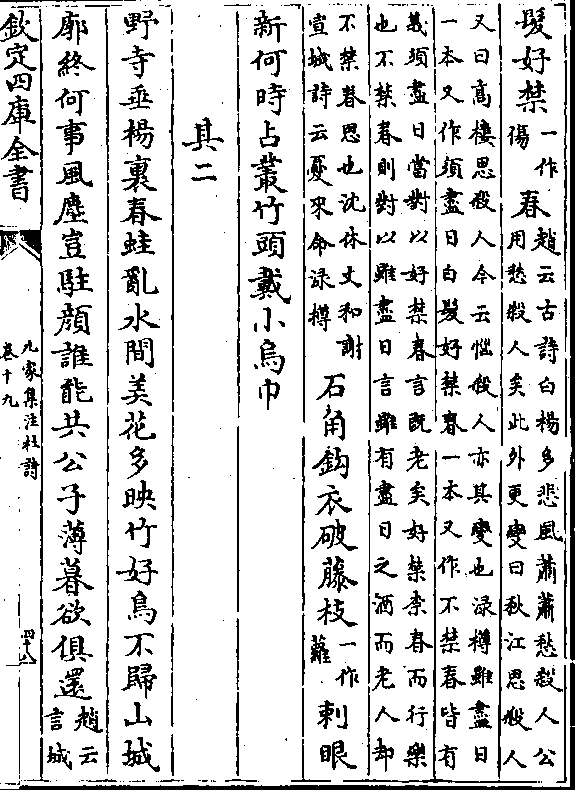 髮好禁一作傷春趙云古詩白楊多悲風蕭蕭愁殺人公
用愁殺人矣此外更變曰秋江思殺人
又曰高樓思殺人今云惱殺人亦其變也渌樽雖盡日
一本又作須盡日白髮好禁春一本又作不禁春皆有
義須盡日當對以好禁春言既老矣好禁柰春而行樂
也不禁春則對以雖盡日言雖有盡日之酒而老人却
不禁春思也沈休文和謝
宣城詩云憂來命渌樽
石角鈎衣破藤枝一作蘿刺眼
新何時占叢竹頭戴小烏巾
其二
野寺垂楊裏春蛙亂水間美花多映竹好鳥不歸山城
郭終何事風塵豈駐顔誰能共公子薄暮欲俱還趙云
言城
欽定四庫全書
九家集注杜詩
卷十九
四十八